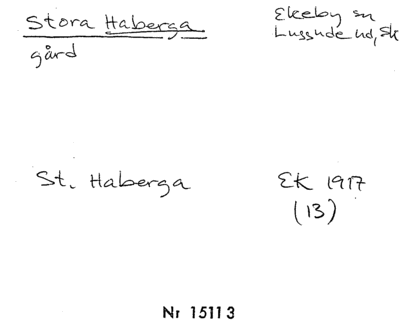 Stora Haberga
Ekeby sn
Lussnde hd, Sk
gård
St. Haberga
EK 1917
(13)
Nr 15113